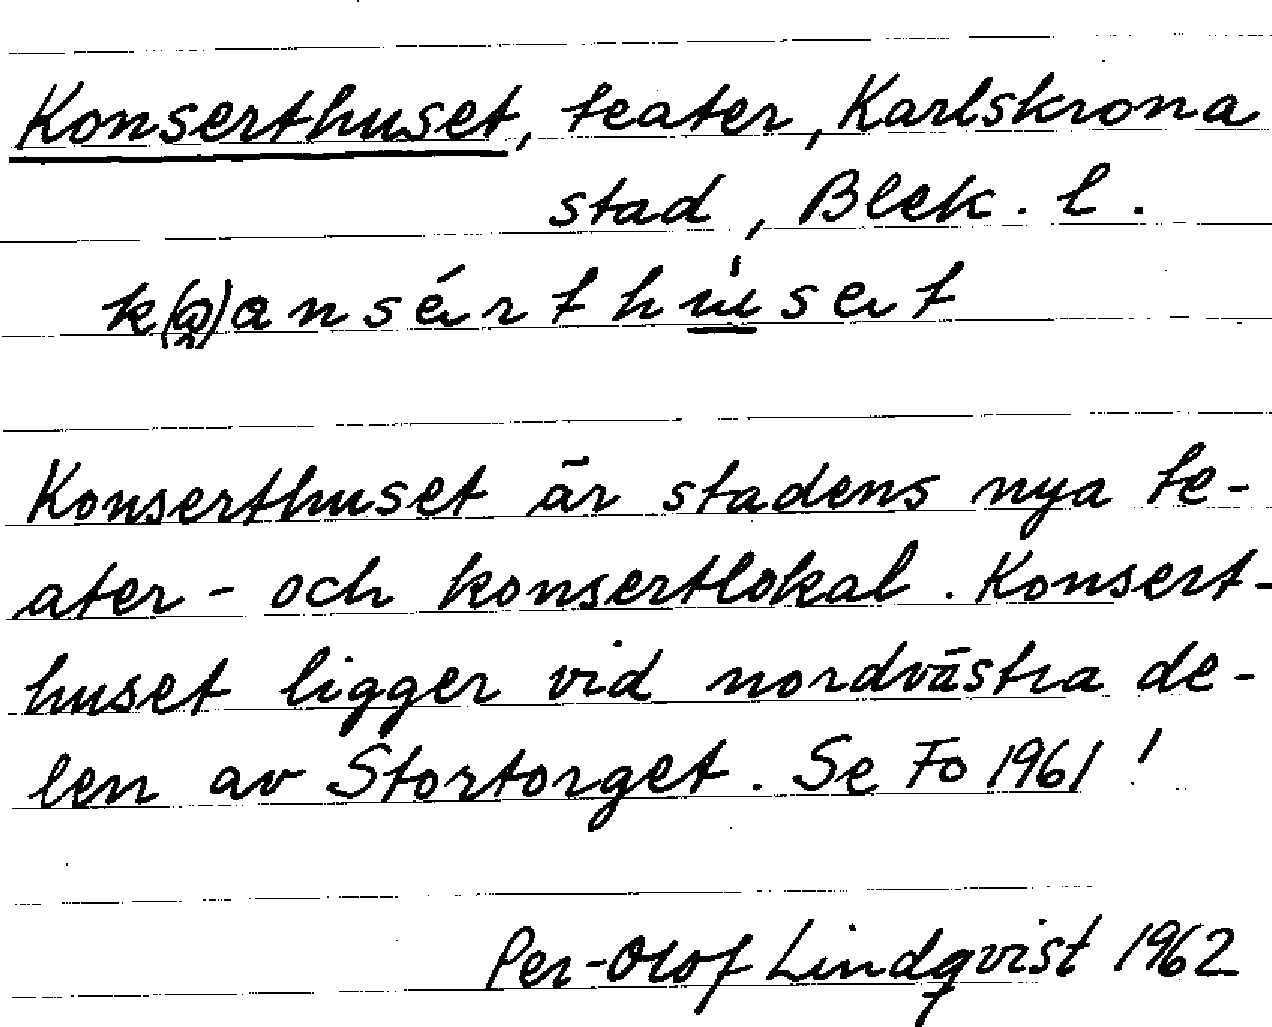 Konserthuset, teater, Karlskrona
stad, Blek. l.
Konserthuset är stadens nya te-
ater- och konsertlokal. Konsert-
huset ligger vid nordvästra de-
len av Stortorget. Se Fo 1961!
Per-Olof Lindqvist 1962